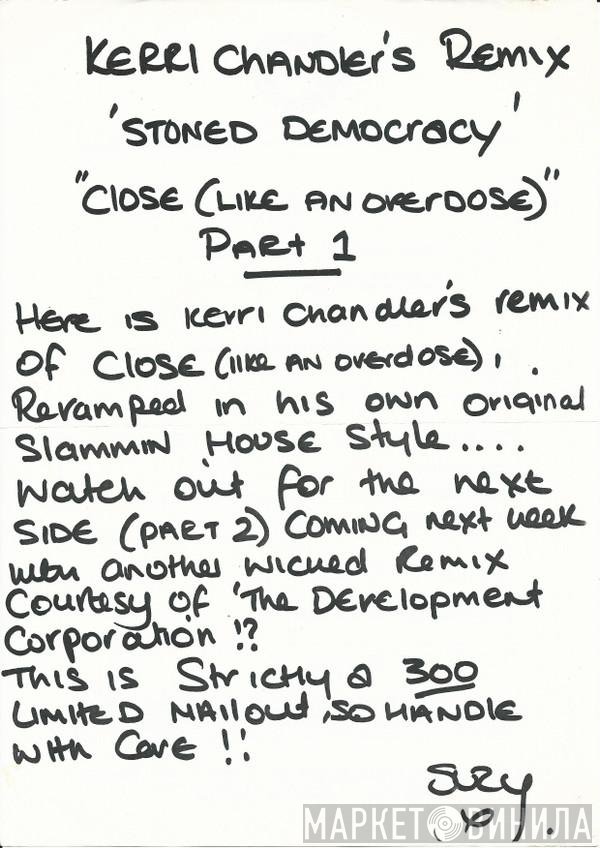 KERRI CHANDLER'S REMIX
'STONED DEMOCRACY'
"CLOSE (LIKE AN OVERDOSE)"
PART 1
HERE IS KERRI CHANDLER'S REMIX
OF CLOSE (LIKE AN OVERDOSE), .
REVAMPED IN HIS OWN ORIGINAL
SLAMMIN HOUSE STYLE....
WATCH OUT FOR THE NEXT
SIDE (PART 2) COMING NEXT WEEK
WITH ANOTHER WICKED REMIX
COURTESY OF 'THE DEVELOPMENT
CORPORATION'!?
THIS IS STRICTLY A 300
LIMITED MAILOUT, SO HANDLE
WITH CARE !!
SUZY
x
МАРКЕТ ВИНИЛА